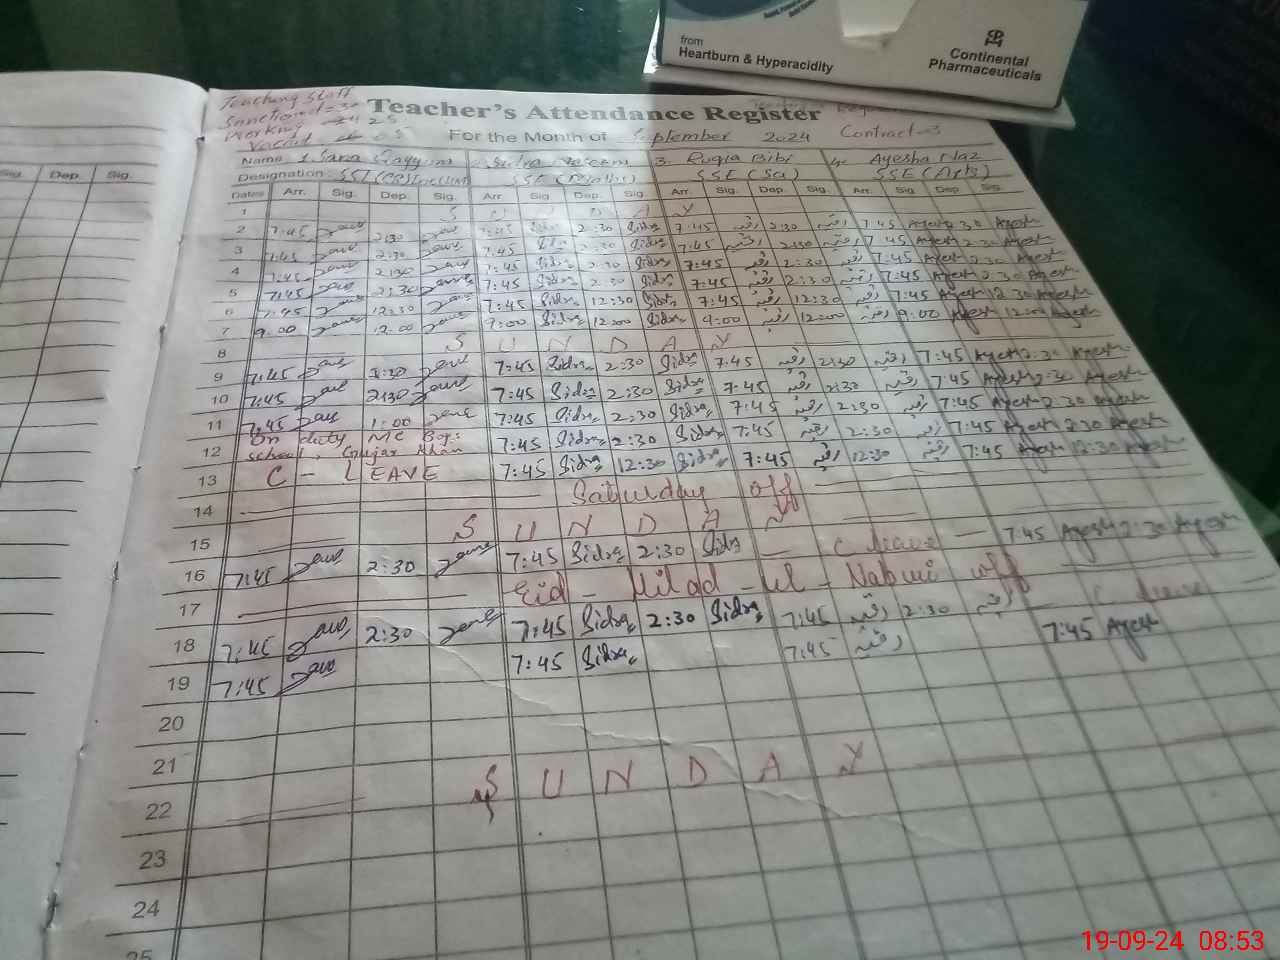 from
Heartburn & Hyperacidity
Continental
Pharmaceuticals
Teaching Staff
Sanctioned = 30
Working 25
Vacant 05
Teacher's Attendance Register
For the Month of September 2024 Contract=3
Name 1. Sana 3. Ruqia Bibi 4. Ayesha Naz
Designation: SSE (Sci) SSE (Arts)
Sig. Dep. Sig.
Dates Arr. Sig. Dep. Sig. Arr Sig. Dep. Sig. Arr. Sig. Dep. Sig. Arr. Sig Dep. Sig.
1 S U N D A Y
2 7:45 2:30 7:45 Sidra 2:30 Sidra 7:45 رقیہ 2:30 رقیہ 7:45 Ayesh 2:30 Ayesh
3 7:45 2:30 7:45 Sidra 2:30 Sidra 7:45 رقیہ 2:30 رقیہ 7:45 Ayesh 2:30 Ayesh
4 7:45 2:30 7:45 Sidra 2:30 Sidra 7:45 رقیہ 2:30 رقیہ 7:45 Ayesh 2:30 Ayesh
5 7:45 2:30 7:45 Sidra 2:30 Sidra 7:45 رقیہ 2:30 رقیہ 7:45 Ayesh 2:30 Ayesh
6 7:45 12:30 7:45 Sidra 12:30 Sidra 7:45 رقیہ 12:30 رقیہ 7:45 Ayesh 12:30 Ayesh
7 9:00 12:00 9:00 Sidra 12:00 Sidra 9:00 رقیہ 12:00 رقیہ 9:00 Ayesh 12:00 Ayesh
8 S U N D A Y
9 7:45 2:30 7:45 Sidra 2:30 Sidra 7:45 رقیہ 2:30 رقیہ 7:45 Ayesh 2:30 Ayesh
10 7:45 2:30 7:45 Sidra 2:30 Sidra 7:45 رقیہ 2:30 رقیہ 7:45 Ayesh 2:30 Ayesh
11 7:45 1:00 7:45 Sidra 2:30 Sidra 7:45 رقیہ 2:30 رقیہ 7:45 Ayesh 2:30 Ayesh
12 On duty MC Boys school, Gujar Khan 7:45 Sidra 2:30 Sidra 7:45 رقیہ 2:30 رقیہ 7:45 Ayesh 2:30 Ayesh
13 C - LEAVE 7:45 Sidra 12:30 Sidra 7:45 رقیہ 12:30 رقیہ 7:45 Ayesh 12:30 Ayesh
14 Saturday off
15 S U N D A Y
16 7:45 2:30 7:45 Sidra 2:30 Sidra C leave 7:45 Ayesh 2:30 Ayesh
17 Eid - Milad - ul - Nabwi off
18 7:45 2:30 7:45 Sidra 2:30 Sidra 7:45 رقیہ 2:30 رقیہ C leave
19 7:45 7:45 Sidra 7:45 رقیہ 7:45 Ayesh
20
21
22 S U N D A Y
23
24
25
19-09-24 08:53